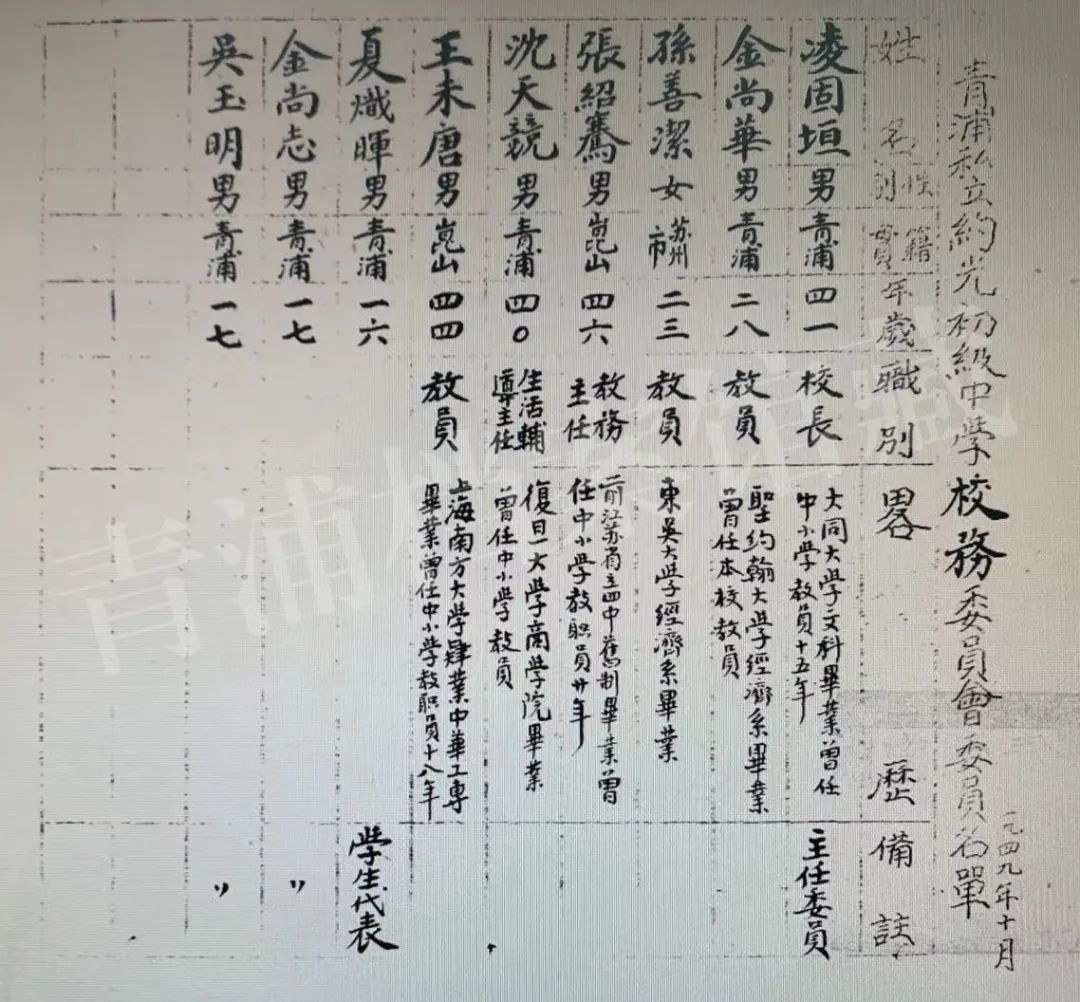 青浦私立約光初級中學校務委員會委員名單
一九四九年十月
姓名 性別 籍貫 年歲 職別 畧歷 備註
凌固垣 男 青浦 四一 校長 大同大学文科畢業曾任中小学教員十五年 主任委員
金尚華 男 青浦 二八 教員 聖約翰大学經濟系畢業曾任本校教員
孫善潔 女 苏州市 二三 教員 東吴大学經濟系畢業
張紹騫 男 崑山 四六 教務主任 前江苏省立四中舊制畢業曾任中小学教职員廿年
沈天競 男 青浦 四〇 生活輔導主任 復旦大学商学院畢業曾任中小学教員
王未唐 男 崑山 四四 教員 上海南方大学肄業中华工专畢業曾任中小学教职員十八年
夏熾暉 男 青浦 一六 学生代表
金尚志 男 青浦 一七 〃
吳玉明 男 青浦 一七 〃
青浦档案馆藏